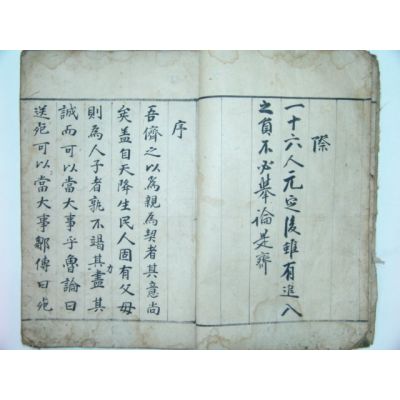 際
一十六人元定後雖有進入
之貟不必擧論是齊
序
吾儕之以爲親爲契者其意尚
矣盖自天降生民人固有父母
則爲人子者孰不竭其力盡其
誠而可以當大事乎魯論曰
送死可以當大事鄒傳曰死